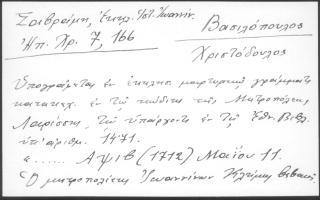 Σουβραφμη, Ἐπετ. Ἰστ. Ἰωαννίν.
Βασιλόπουλος
Ἠπ. Χρ. 7, 166
Χριστόδουλος
Ὑπογράφεται ἐν ἐπισήμ. μαρτυρικ. γράμματι
καταχ. ἐν τῷ κώδικι τῆς Μητροπόλεως
Λαρίσσης, τῷ ὑπάρχοντι ἐν τῇ Ἐθν. Βιβλ.
ὑπ' ἀριθμ. 1471.
«...... ΑΨΙΒ (1712) Μαΐου 11.
Ὁ μητροπολίτης Ἰωαννίνων Κλήμης βεβαιοῖ